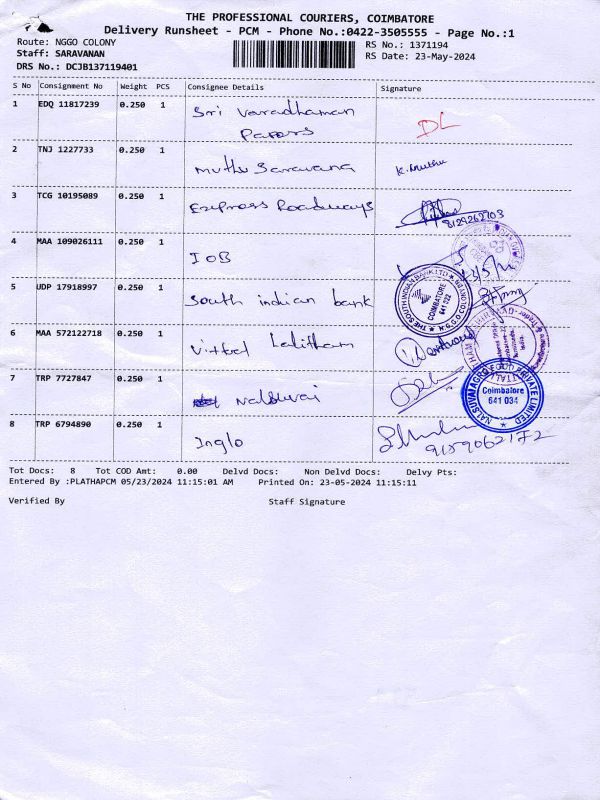 THE PROFESSIONAL COURIERS, COIMBATORE
Delivery Runsheet - PCM - Phone No.:0422-3505555 - Page No.:1
Route: NGGO COLONY
RS No.: 1371194
Staff: SARAVANAN
RS Date: 23-May-2024
DRS No.: DCJB137119401
S No Consignment No Weight PCS Consignee Details Signature
1 EDQ 11817239 0.250 1 Sri Varadhaman
Papers
DL
2 TNJ 1227733 0.250 1 Muthu Saravana K. Muthu
3 TCG 10195089 0.250 1 Express Roadways
8129262103
4 MAA 109026111 0.250 1 IOB
5 UDP 17918997 0.250 1 South indian bank
THE SOUTH INDIAN BANK LTD
COIMBATORE
641 022
6 MAA 572122718 0.250 1 Vittal Lalitham
7 TRP 7727847 0.250 1 Nalsuvai
NALSUVAI AGRO FOOD PRIVATE LIMITED
Coimbatore
641 034
8 TRP 6794890 0.250 1 Inglo
9189062172
Tot Docs: 8 Tot COD Amt: 0.00 Delvd Docs: Non Delvd Docs: Delvy Pts:
Entered By :PLATHAPCM 05/23/2024 11:15:01 AM Printed On: 23-05-2024 11:15:11
Verified By Staff Signature